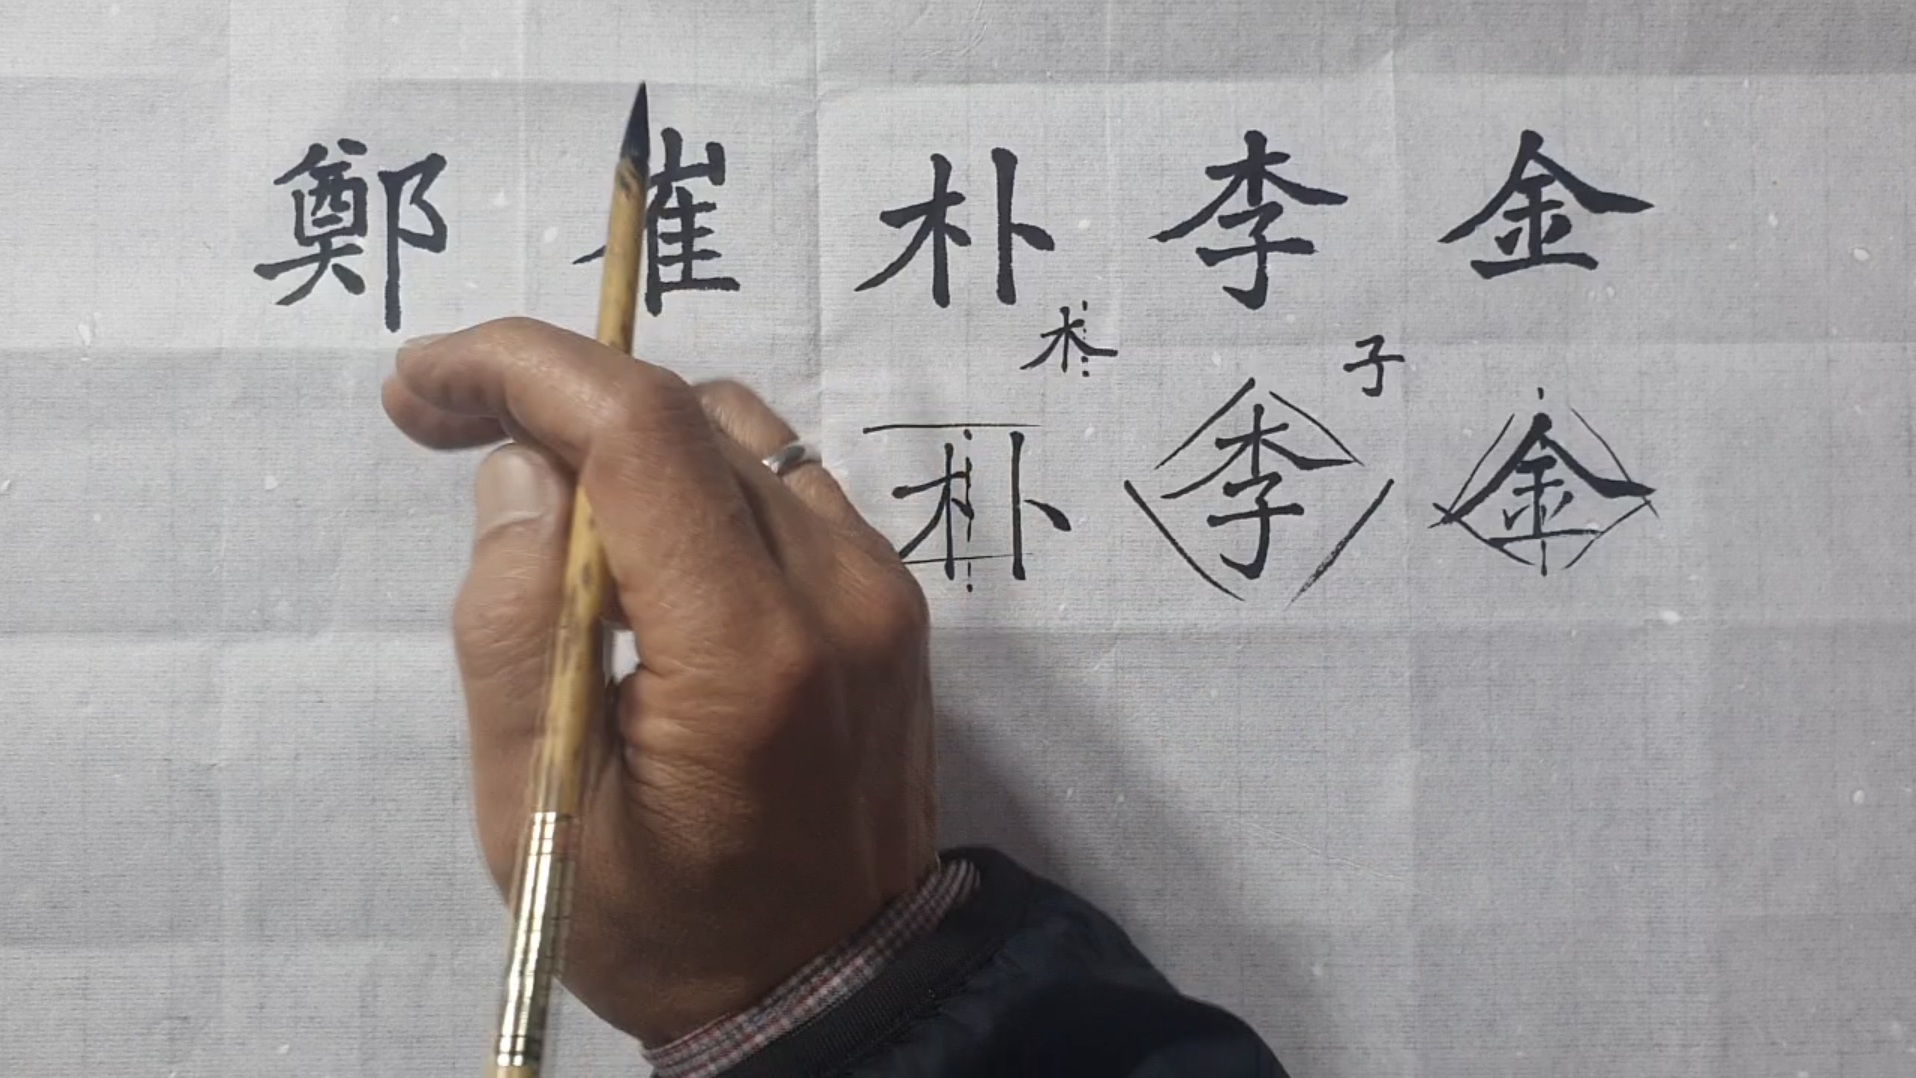 金 李 朴 崔 鄭
子 木
金 李 朴